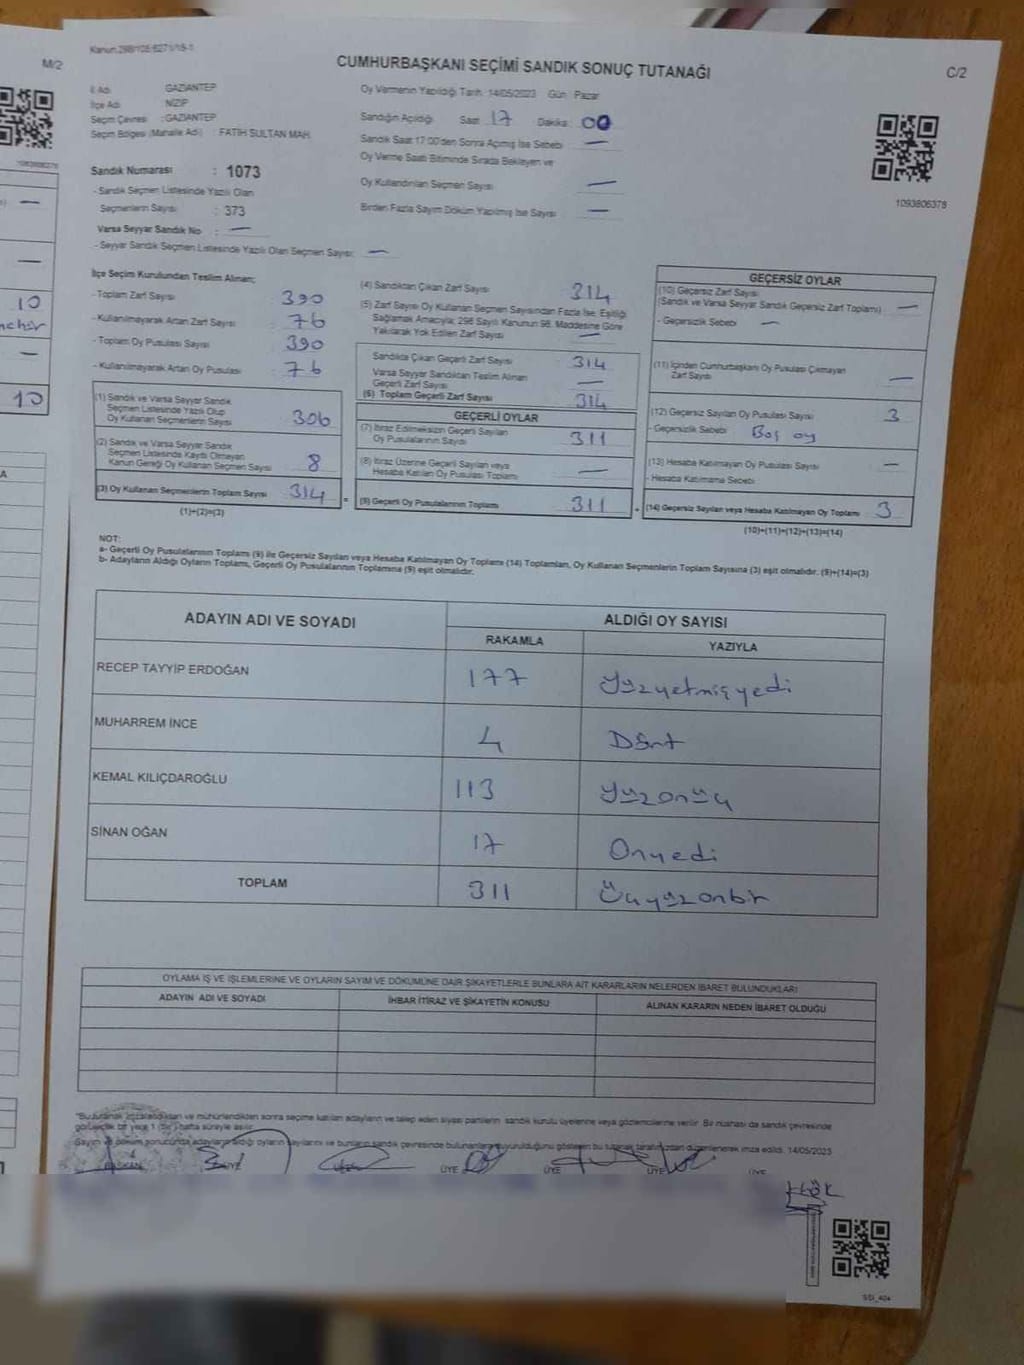 Kanun:298/105:6271/15-1
CUMHURBAŞKANI SEÇİMİ SANDIK SONUÇ TUTANAĞI
M/2
C/2
İl Adı : GAZİANTEP
İlçe Adı : NİZİP
Seçim Çevresi : GAZİANTEP
Seçim Bölgesi (Mahalle Adı) : FATİH SULTAN MAH.
Sandık Numarası : 1073
- Sandık Seçmen Listesinde Yazılı Olan
Seçmenlerin Sayısı : 373
Varsa Seyyar Sandık No : —
- Seyyar Sandık Seçmen Listesinde Yazılı Olan Seçmen Sayısı: —
Oy Vermenin Yapıldığı Tarih: 14/05/2023 Gün: Pazar
Sandığın Açıldığı Saat 17 Dakika: 00
Sandık Saat 17:00'den Sonra Açılmış İse Sebebi —
Oy Verme Saati Bitiminde Sırada Bekleyen ve
Oy Kullandırılan Seçmen Sayısı —
Birden Fazla Sayım Döküm Yapılmış İse Sayısı —
1093806378
İlçe Seçim Kurulundan Teslim Alınan;
- Toplam Zarf Sayısı 390
- Kullanılmayarak Artan Zarf Sayısı : 76
- Toplam Oy Pusulası Sayısı 390
- Kullanılmayarak Artan Oy Pusulası : 76
(1) Sandık ve Varsa Seyyar Sandık
Seçmen Listesinde Yazılı Olup
Oy Kullanan Seçmenlerin Sayısı 306
(2) Sandık ve Varsa Seyyar Sandık
Seçmen Listesinde Kayıtlı Olmayan
Kanun Gereği Oy Kullanan Seçmen Sayısı 8
(3) Oy Kullanan Seçmenlerin Toplam Sayısı 314
(1)+(2)=(3)
=
(4) Sandıktan Çıkan Zarf Sayısı 314
(5) Zarf Sayısı Oy Kullanan Seçmen Sayısından Fazla İse, Eşitliği
Sağlamak Amacıyla; 298 Sayılı Kanunun 98. Maddesine Göre
Yakılarak Yok Edilen Zarf Sayısı —
Sandıkta Çıkan Geçerli Zarf Sayısı 314
Varsa Seyyar Sandıktan Teslim Alınan
Geçerli Zarf Sayısı —
(6) Toplam Geçerli Zarf Sayısı 314
GEÇERLİ OYLAR
(7) İtiraz Edilmeksizin Geçerli Sayılan
Oy Pusulalarının Sayısı 311
(8) İtiraz Üzerine Geçerli Sayılan veya
Hesaba Katılan Oy Pusulası Toplamı —
(9) Geçerli Oy Pusulalarının Toplamı 311
+
GEÇERSİZ OYLAR
(10) Geçersiz Zarf Sayısı
(Sandık ve Varsa Seyyar Sandık Geçersiz Zarf Toplamı) —
- Geçersizlik Sebebi —
(11) İçinden Cumhurbaşkanı Oy Pusulası Çıkmayan
Zarf Sayısı —
(12) Geçersiz Sayılan Oy Pusulası Sayısı 3
- Geçersizlik Sebebi Boş oy
(13) Hesaba Katılmayan Oy Pusulası Sayısı —
- Hesaba Katılmama Sebebi
(14) Geçersiz Sayılan veya Hesaba Katılmayan Oy Toplamı 3
(10)+(11)+(12)+(13)=(14)
NOT:
a- Geçerli Oy Pusulalarının Toplamı (9) ile Geçersiz Sayılan veya Hesaba Katılmayan Oy Toplamı (14) Toplamları, Oy Kullanan Seçmenlerin Toplam Sayısına (3) eşit olmalıdır. (9)+(14)=(3)
b- Adayların Aldığı Oyların Toplamı, Geçerli Oy Pusulalarının Toplamına (9) eşit olmalıdır.
ADAYIN ADI VE SOYADI
ALDIĞI OY SAYISI
RAKAMLA YAZIYLA
RECEP TAYYİP ERDOĞAN 177 Yüzyetmişyedi
MUHARREM İNCE 4 Dört
KEMAL KILIÇDAROĞLU 113 yüzonüç
SİNAN OĞAN 17 Onyedi
TOPLAM 311 Üçyüzonbir
OYLAMA İŞ VE İŞLEMLERİNE VE OYLARIN SAYIM VE DÖKÜMÜNE DAİR ŞİKAYETLERLE BUNLARA AİT KARARLARIN NELERDEN İBARET BULUNDUKLARI
ADAYIN ADI VE SOYADI İHBAR İTİRAZ VE ŞİKAYETİN KONUSU ALINAN KARARIN NEDEN İBARET OLDUĞU
"Bu tutanak imzalandıktan ve mühürlendikten sonra seçime katılan adayların ve talep eden siyasi partilerin sandık kurulu üyelerine veya gözlemcilerine verilir. Bir nüshası da sandık çevresinde
görülecek bir yere 1 (bir) hafta süreyle asılır.
Sayım ve döküm sonucunda adayların aldığı oyların sayılarını ve bunların sandık çevresinde bulunanlara duyurulduğunu gösteren bu tutanak tarafımızdan düzenlenerek imza edildi. 14/05/2023
BAŞKAN ÜYE ÜYE ÜYE ÜYE ÜYE ÜYE
10
10